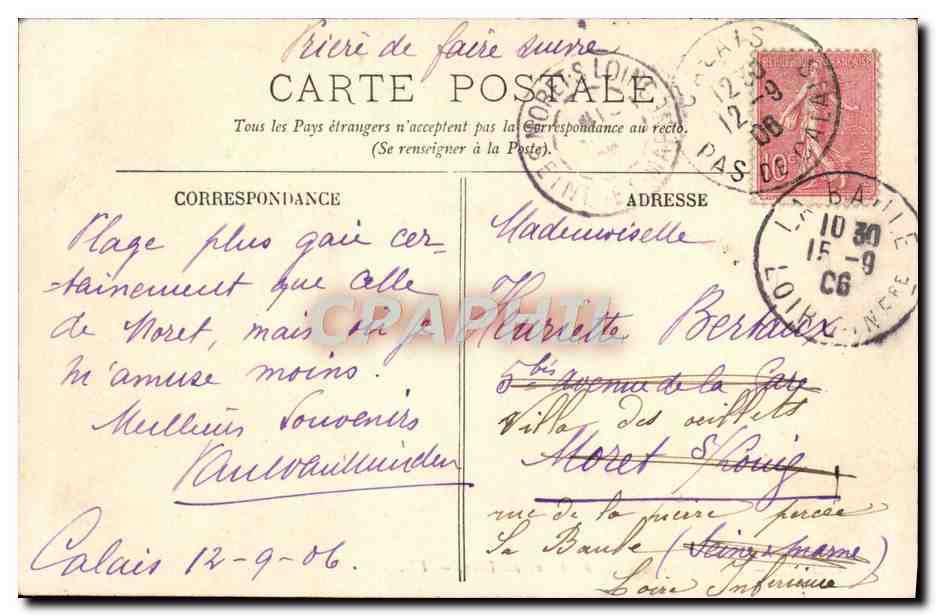 Prière de faire suivre
CARTE POSTALE
Tous les Pays étrangers n'acceptent pas la Correspondance au recto.
(Se renseigner à la Poste).
CORRESPONDANCE
Plage plus gaie cer-
tainement que celle
de Moret, mais où je
m'amuse moins.
Meilleurs Souvenirs
Calais 12-9-06
ADRESSE
Mademoiselle
Henriette Bertaux
5bis avenue de la Gare
Villa des oeillets
Moret s/Loing
rue de la pierre percée
La Baule (Seine & Marne)
Loire Inférieure
CALAIS
12 30
12 -9
06
PAS DE CALAIS
MORET-S-LOING
SEINE-ET-MARNE
LA BAULE
10 30
15 -9
06
LOIRE INFRE
CPAPHIL